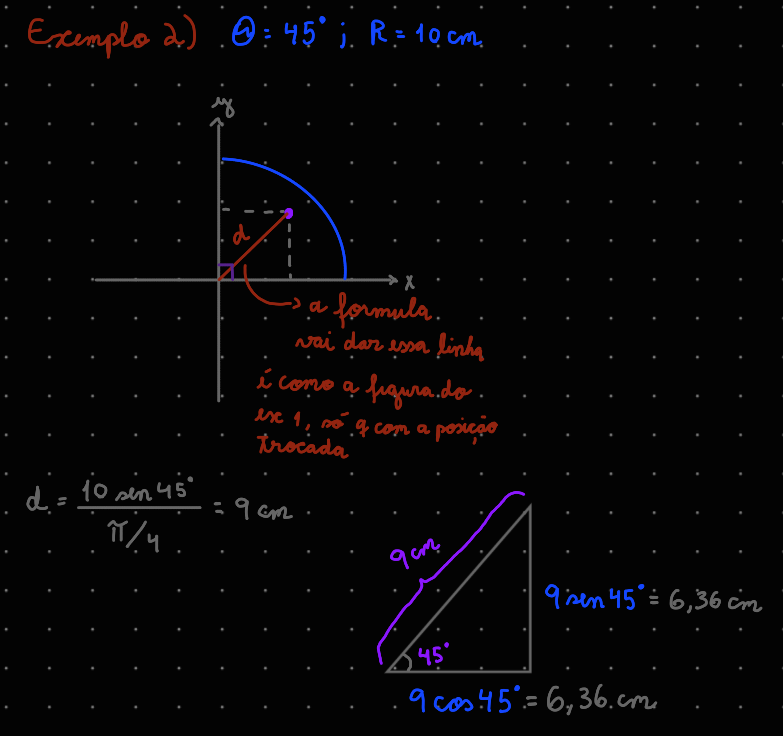 Exemplo 2) θ = 45° ; R = 10 cm
y
d
x
a formula
vai dar essa linha
é como a figura do
ex 1, só q com a posição
trocada
d = 10 sen 45° / π/4 = 9 cm
9 cm
9 sen 45° = 6,36 cm
45°
9 cos 45° = 6,36 cm